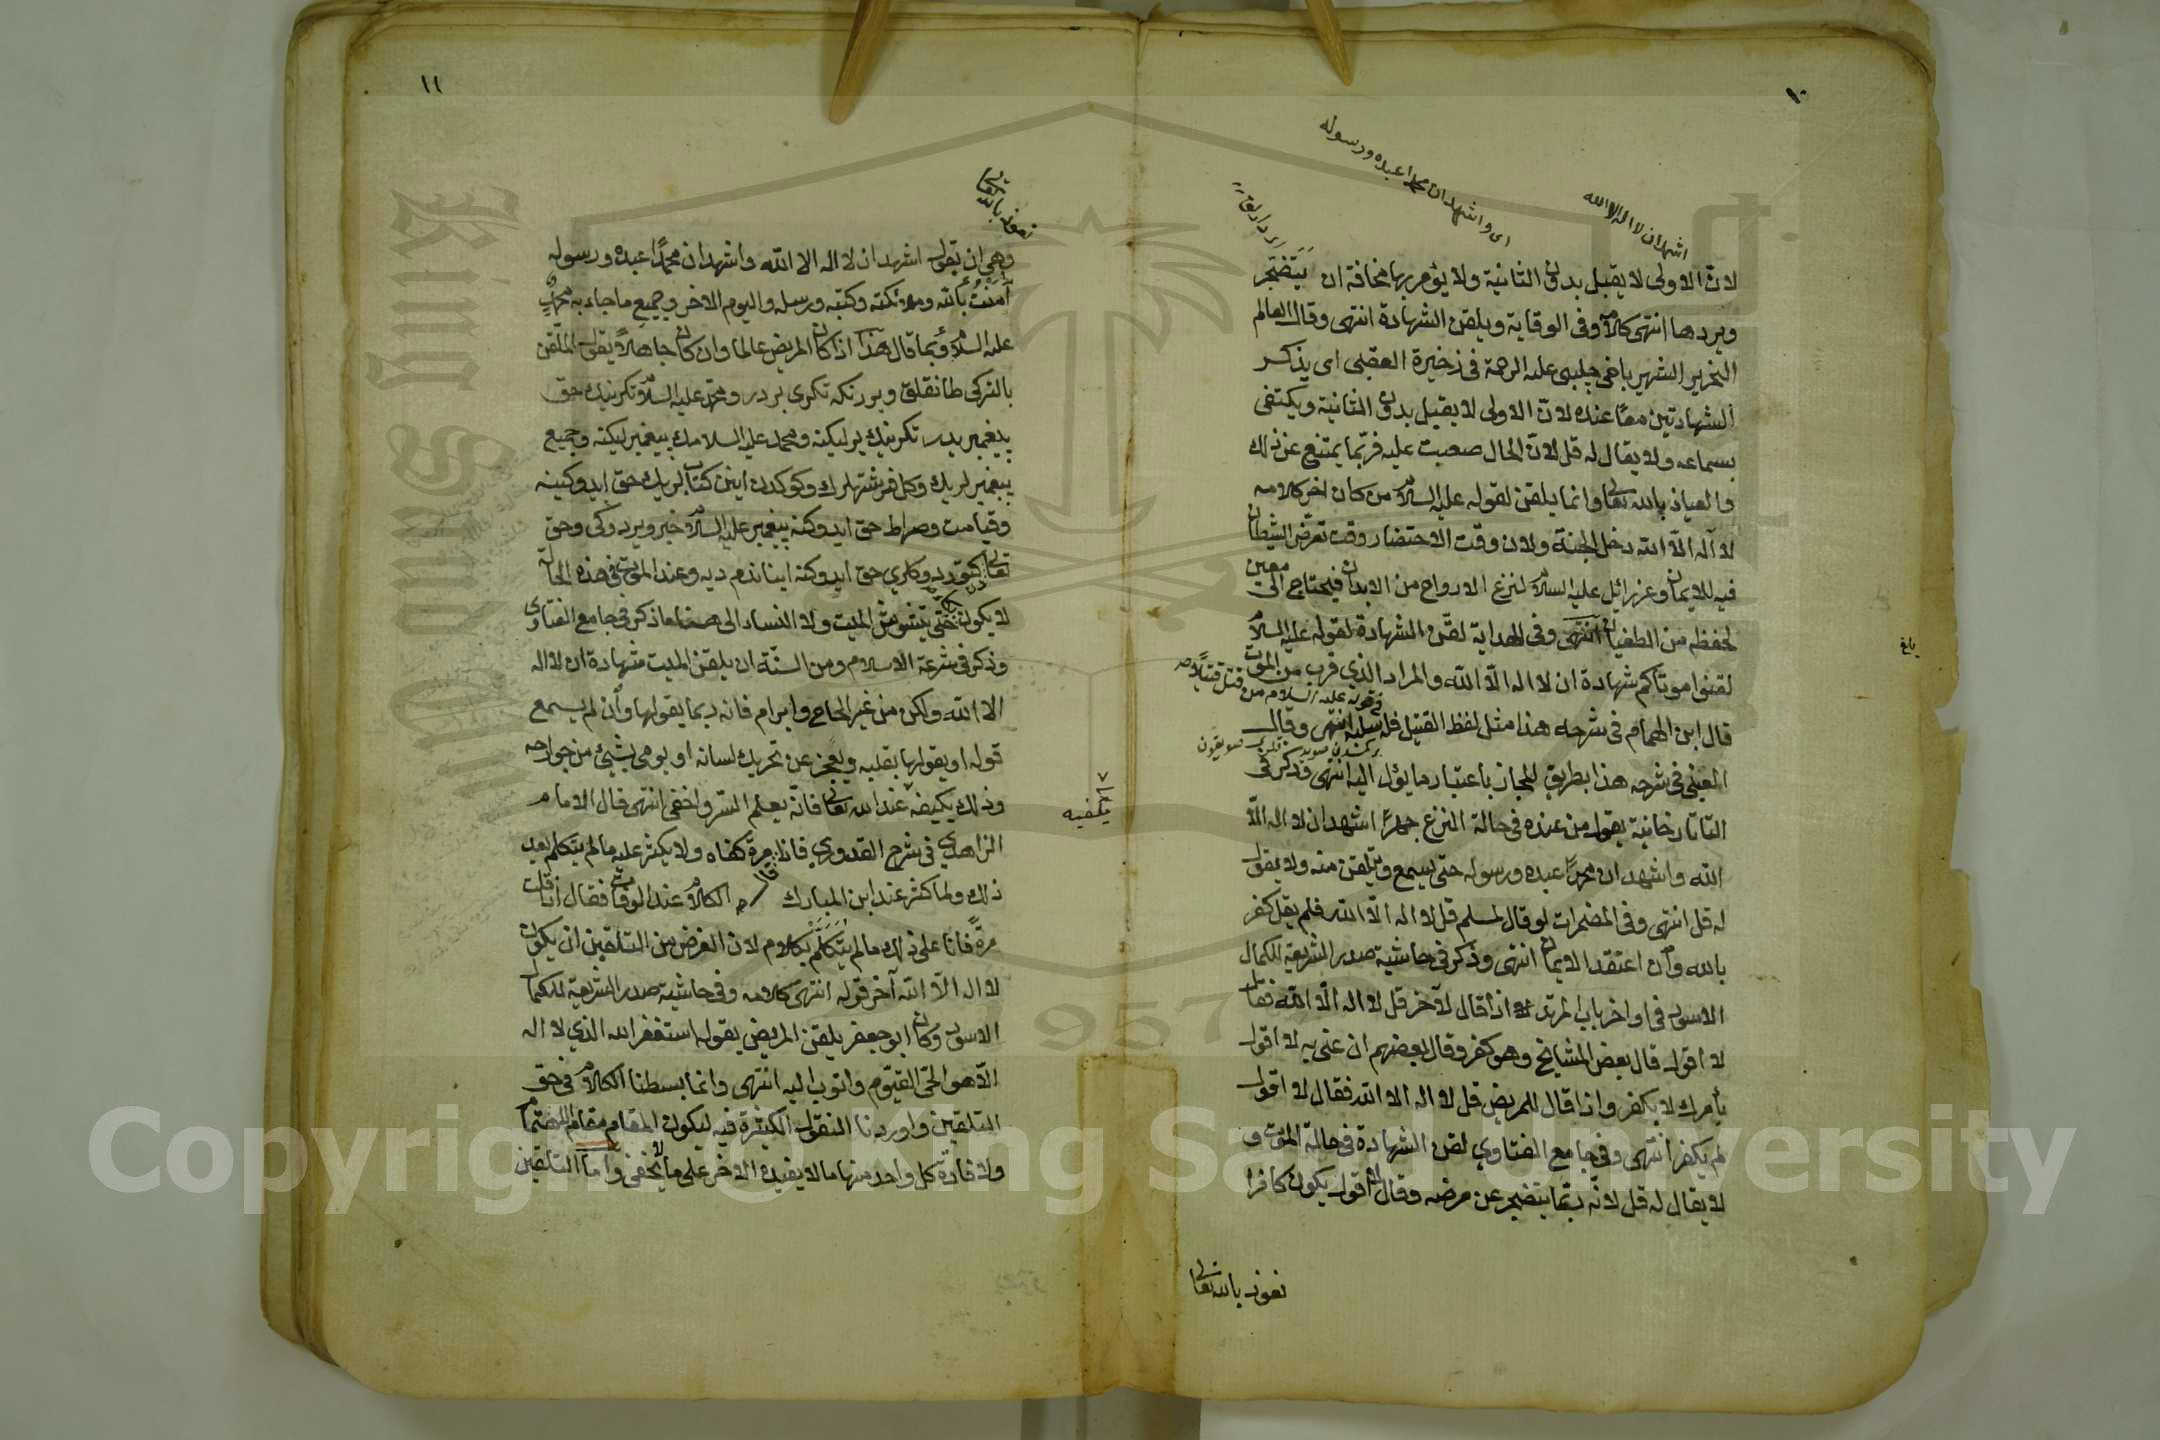 ١٠
اشهد ان لا اله الا الله
اى واشهد ان محمدا عبده ورسوله
لان الاولى لا يقبل بدون الثانية ولا يؤمر بها مخافة ان يتضجر
ويردها انتهى كلامه وفى الوقاية ويلقن الشهادة انتهى وقال العالم
النحرير الشهير باخى چلبى عليه الرحمة فى ذخيرة العقبى اى يذكر
الشهادتين معًا عنده لانّ الاولى لا يقبل بدون الثانية ويكتفى
بسماعه ولا يقال له قل لانّ الحال صعبت عليه فربّما يمتنع عن ذلك
والعياذ بالله تعالى وانما يلقن لقوله عليه السلام من كان اخر كلامه
لا اله الّا الله دخل الجنة ولان وقت الاحتضار وقت تعرّض الشيطان
فيه للايمان وعزرائيل عليه السلام لنزع الارواح من الابدان فيحتاج الى معين
لحفظه من الطغيان انتهى وفى الهداية لقّن الشهادة لقوله عليه السلام
لقنوا موتاكم شهادة ان لا اله الّا الله والمراد الذي قرب من الموت
فى قوله عليه السلام من قتل قتيلًا
قال ابن الهمام فى شرحه هذا مثل لفظ القتيل فله سلبه انتهى وقال
العينى فى شرحه هذا بطريق المجاز باعتبار ما يؤل اليه انتهى وذكر فى
التاتارخانية يقول من عنده فى حالة النزع جهرًا اشهد ان لا اله الّا
الله واشهد ان محمدًا عبده ورسوله حتى يسمع ويتلقن منه ولا يقول
له قل انتهى وفى المضمرات لو قال لمسلم قل لا اله الّا الله فلم يقل كفر
بالله وان اعتقد الايمان انتهى وذكر فى حاشية صدر الشريعة للكمال
الاسود فى اواخر باب المرتد اذا قال لآخر قل لا اله الّا الله فقال
لا اقول قال بعض المشايخ وهو كفر وقال بعضهم ان عنى به لا اقول
بأمرك لا يكفر واذا قال للمريض قل لا اله الا الله فقال لا اقول
لم يكفر انتهى وفى جامع الفتاوى لقن الشهادة فى حالة الموت و
لا يقال له قل لانّه ربّما يتضجر عن مرضه وقال لا اقول يكون كافرا
نعوذ بالله تعالى
١١
نعوذ بالله تعالى
وهى ان يقول اشهد ان لا اله الا الله واشهد ان محمدًا عبده ورسوله
آمنت بالله وملائكته وكتبه ورسله واليوم الاخر وجميع ما جاء به محمد
عليه السلام وبما قال هذا اذا كان المريض عالما وان كان جاهلًا يقول الملقن
بالتركى طانقلق ويررنكه تكرى بردر ومحمد عليه السلام تكرينك حق
پيغمبريدر تكرينك برليكنه ومحمد عليه السلامك پيغمبرليكنه وجميع
پيغمبرلريك وكل فرشتهلرك وكوكدن اينن كتابلريك حق ايدوكينه
وقيامت وصراط حق ايدوكنه پيغمبر عليه السلام خبر ويردوكى وحق
لا يكون حتى يتشوش الميت ولا النساء الى هنا ما ذكر فى جامع الفتاوى
وذكر فى شرعة الاسلام ومن السنّة ان يلقن الميت شهادة ان لا اله
الا الله ولكن من غير الحاح وابرام فانه ربما يقولها وان لم يسمع
قوله او يقولها بقلبه ويعجز عن تحريك لسانه او يومى بشيئ من جوارحه
وذلك يكفيه عند الله تعالى فانّه يعلم السّر واخفى انتهى قال الامام
يكفيه
الزاهدى فى شرح القدورى فاذا قال مرة كفاه ولا يكثر عليه ما لم يتكلم بعد
ذلك ولما كثر عند ابن المبارك الكلام عند الوفات فقال اذا قلت
مرةً فانا على ذلك ما لم يتكلّم بكلام لان الغرض من التلقين ان يكون
لا اله الّا الله آخر قوله انتهى كلامه وفى حاشية صدر الشريعة للكمال
الاسود وكان ابو جعفر يلقن المريض بقوله استغفر الله الذي لا اله
الّا هو الحىّ القيّوم واتوب اليه انتهى وانما بسطنا الكلام فى حق
التلقين واوردنا النقول الكثيرة فيه ليكون المقام مقام الاهتمام
ولافادة كل واحد منها ما لا يفيده الاخر على ما لا يخفى وامّا التلقين
King Saud University
1957
Copyright © King Saud University